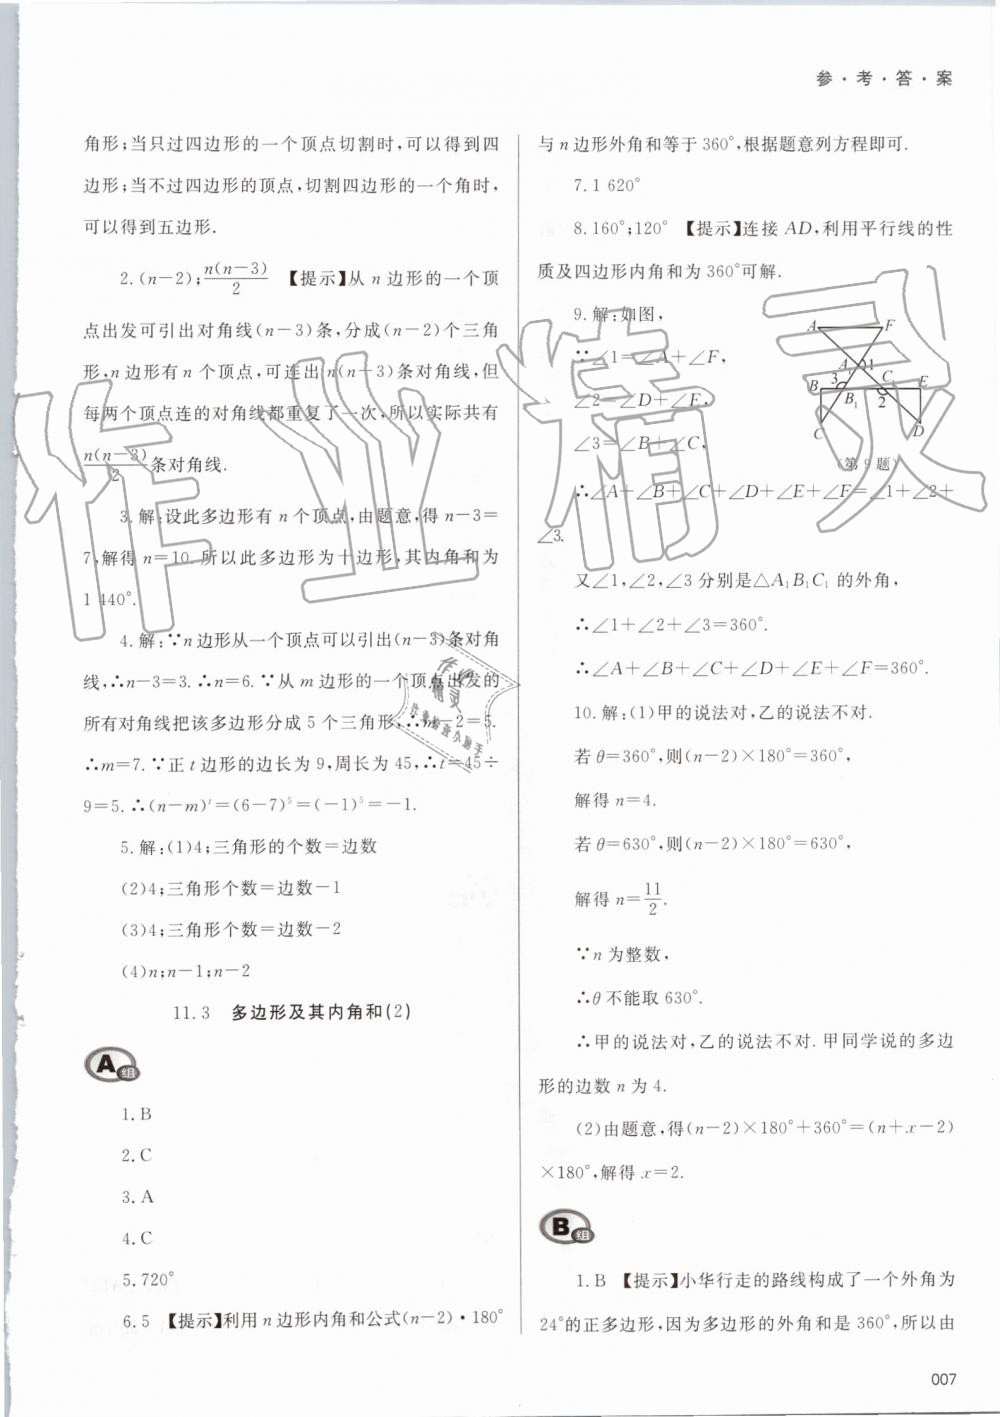 参·考·答·案
角形;当只过四边形的一个顶点切割时,可以得到四
边形;当不过四边形的顶点,切割四边形的一个角时,
可以得到五边形.
2.(n-2);n(n-3)/2 【提示】从n边形的一个顶
点出发可引出对角线(n-3)条,分成(n-2)个三角
形,n边形有n个顶点,可连出n(n-3)条对角线,但
每两个顶点连的对角线都重复了一次,所以实际共有
n(n-3)/2条对角线.
3.解:设此多边形有n个顶点,由题意,得n-3=
7,解得n=10.所以此多边形为十边形,其内角和为
1 440°.
4.解:∵n边形从一个顶点可以引出(n-3)条对角
线,∴n-3=3.∴n=6.∵从m边形的一个顶点出发的
所有对角线把该多边形分成5个三角形,∴m-2=5.
∴m=7.∵正t边形的边长为9,周长为45,∴t=45÷
9=5.∴(n-m)ᵗ=(6-7)⁵=(-1)⁵=-1.
5.解:(1)4;三角形的个数=边数
(2)4;三角形个数=边数-1
(3)4;三角形个数=边数-2
(4)n;n-1;n-2
11.3 多边形及其内角和(2)
A组
1.B
2.C
3.A
4.C
5.720°
6.5 【提示】利用n边形内角和公式(n-2)·180°
与n边形外角和等于360°,根据题意列方程即可.
7.1 620°
8.160°;120° 【提示】连接AD,利用平行线的性
质及四边形内角和为360°可解.
9.解:如图,
∵∠1=∠A+∠F,
∠2=∠D+∠E,
∠3=∠B+∠C,
A F
A 1
B 3 C E
B₁ 2
C D
(第9题)
∴∠A+∠B+∠C+∠D+∠E+∠F=∠1+∠2+
∠3.
又∠1,∠2,∠3分别是△A₁B₁C₁的外角,
∴∠1+∠2+∠3=360°.
∴∠A+∠B+∠C+∠D+∠E+∠F=360°.
10.解:(1)甲的说法对,乙的说法不对.
若θ=360°,则(n-2)×180°=360°,
解得n=4.
若θ=630°,则(n-2)×180°=630°,
解得n=11/2.
∵n为整数,
∴θ不能取630°.
∴甲的说法对,乙的说法不对.甲同学说的多边
形的边数n为4.
(2)由题意,得(n-2)×180°+360°=(n+x-2)
×180°,解得x=2.
B组
1.B 【提示】小华行走的路线构成了一个外角为
24°的正多边形,因为多边形的外角和是360°,所以由
007
作业精灵
作业
精灵